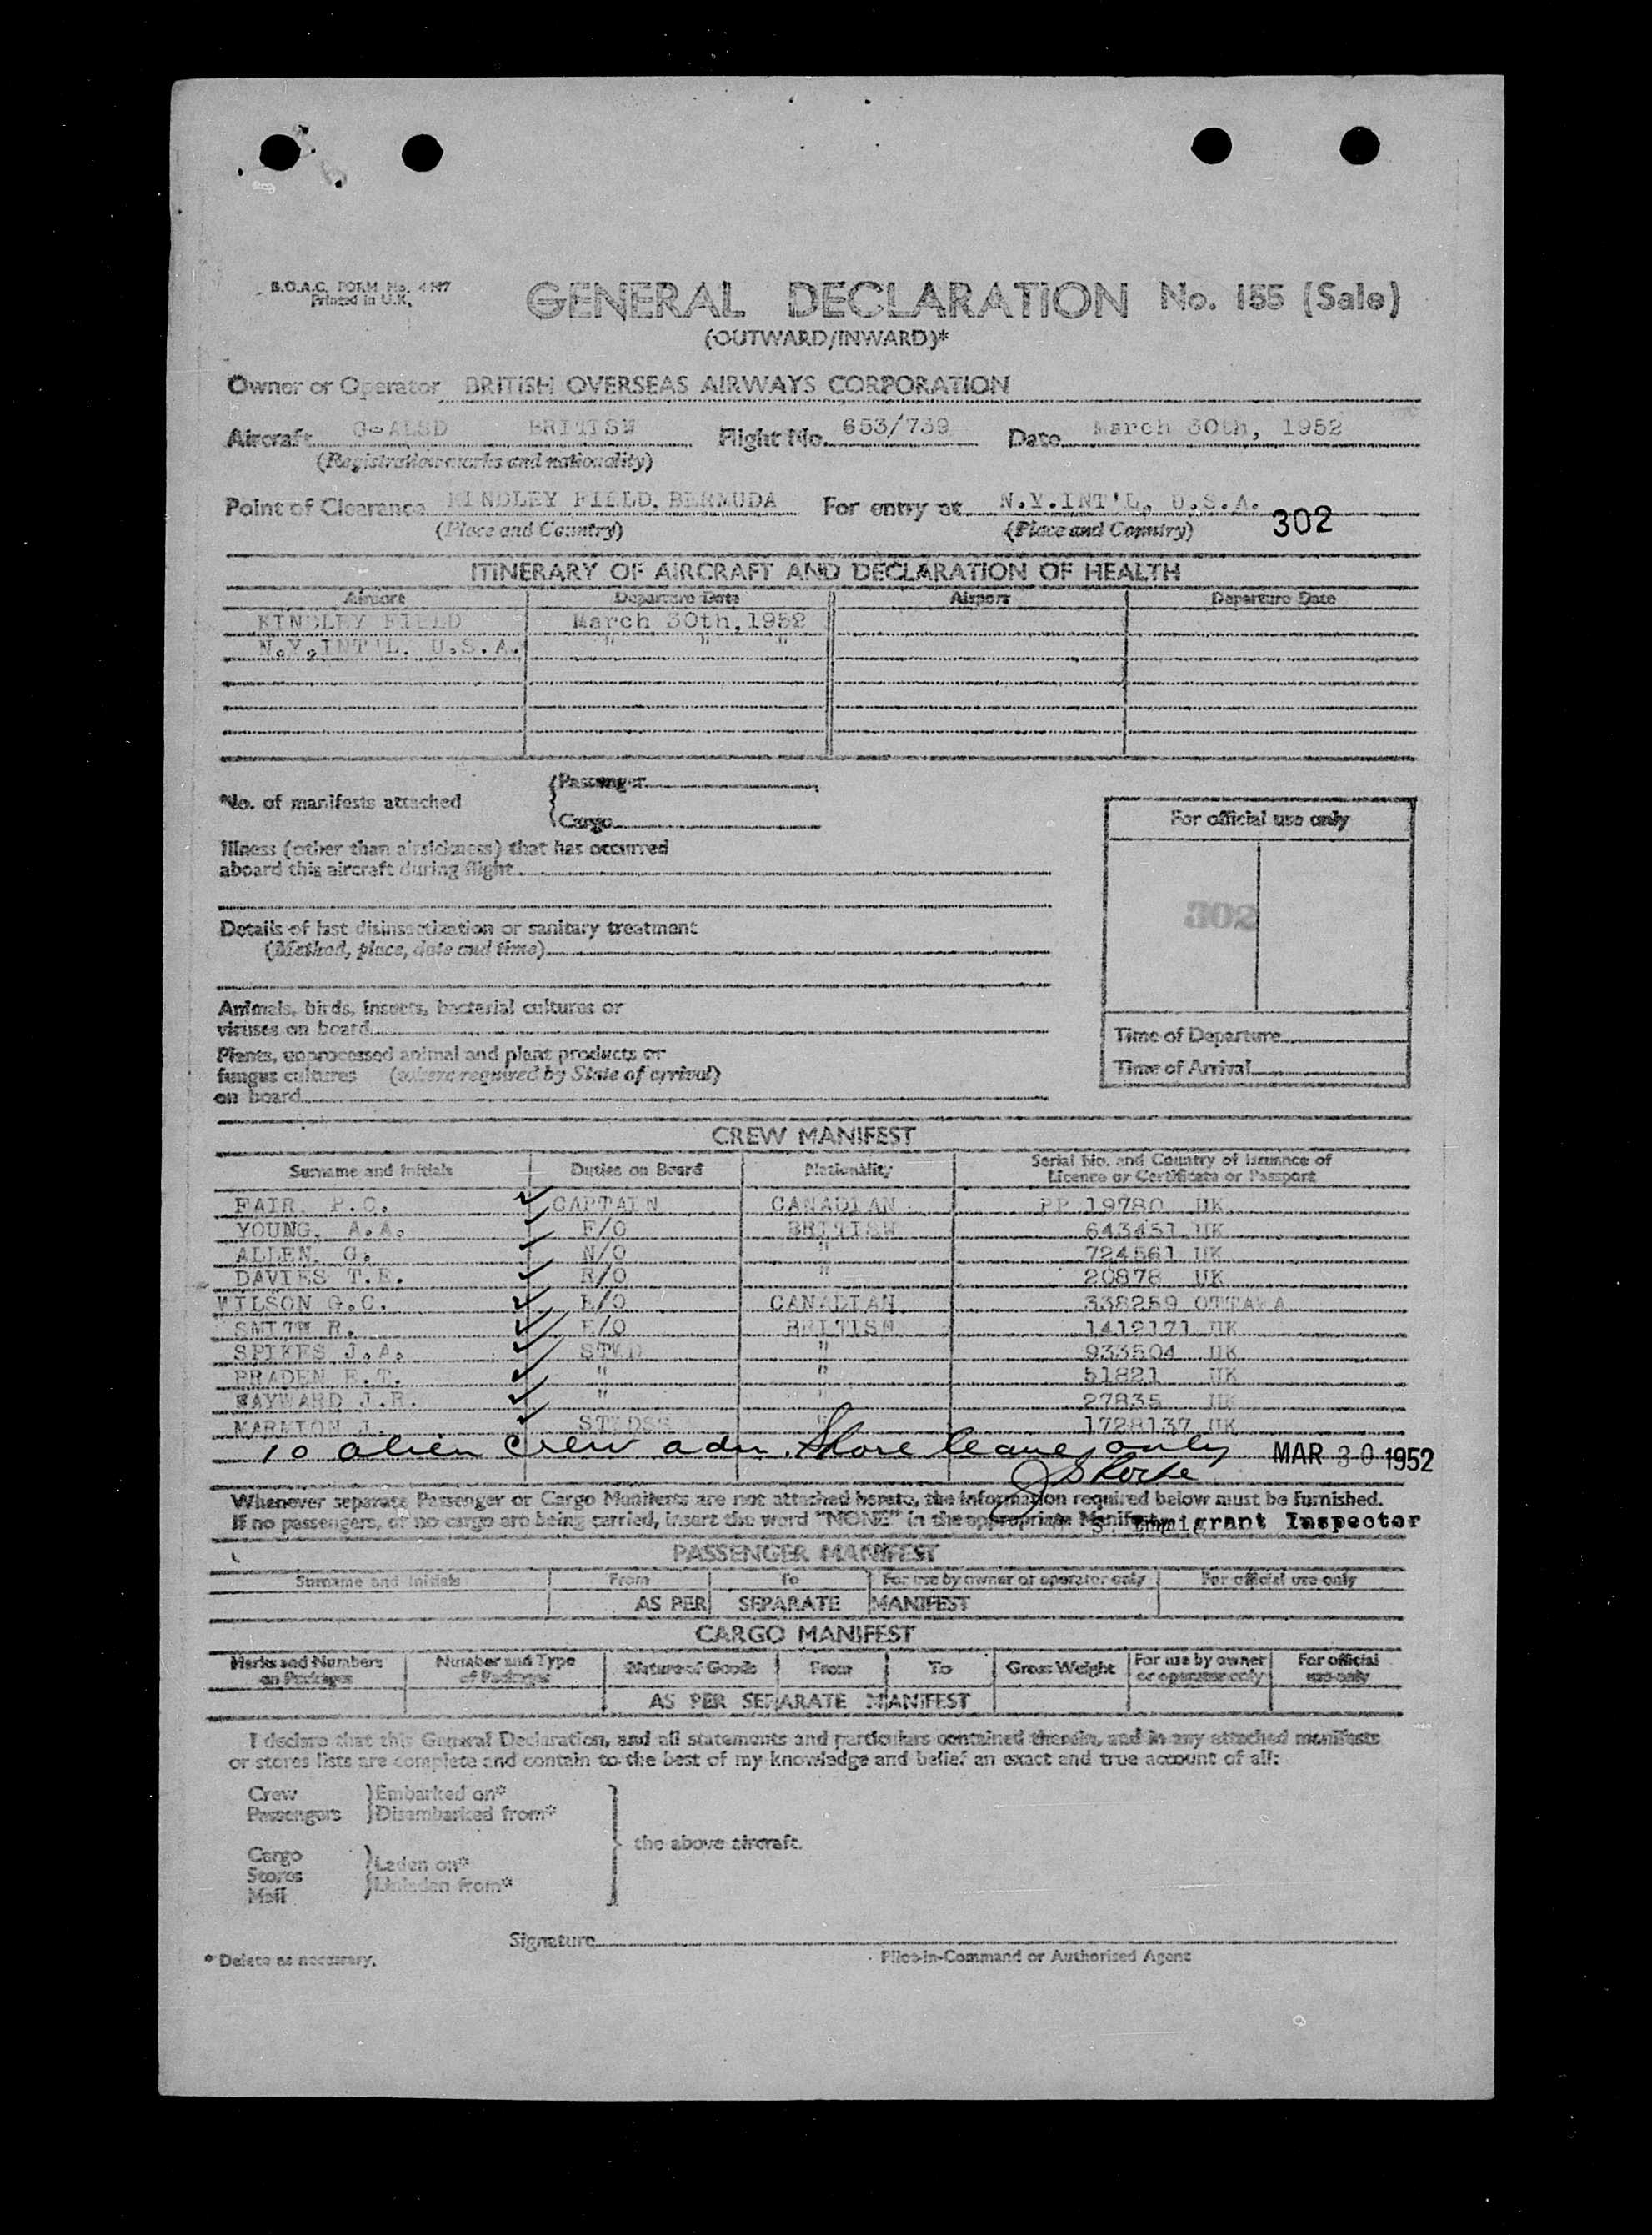 B.O.A.C. FORM No. 4197
Printed in U.K.
GENERAL DECLARATION No. 155 (Sale)
(OUTWARD/INWARD)*
Owner or Operator BRITISH OVERSEAS AIRWAYS CORPORATION
Aircraft G-ALSD BRITISH Flight No. 653/739 Date March 30th, 1952
(Registration marks and nationality)
Point of Clearance KINDLEY FIELD. BERMUDA For entry at N.Y.INT'L, U.S.A.
(Place and Country) (Place and Country) 302
ITINERARY OF AIRCRAFT AND DECLARATION OF HEALTH
Airport Departure Date Airport Departure Date
KINDLEY FIELD March 30th,1952
N.Y.INT'L. U.S.A. " " "
*No. of manifests attached
(Passenger
(Cargo
For official use only
Illness (other than airsickness) that has occurred
aboard this aircraft during flight
302
Details of last disinsectization or sanitary treatment
(Method, place, date and time)
Animals, birds, insects, bacterial cultures or
viruses on board
Time of Departure
Plants, unprocessed animal and plant products or
fungus cultures (where required by State of arrival)
Time of Arrival
on board
CREW MANIFEST
Surname and Initials Duties on Board Nationality Serial No. and Country of Issuance of
Licence or Certificate or Passport
FAIR. P.C. CAPTAIN CANADIAN PP 19780 UK
YOUNG, A.A. F/O BRITISH 643451 UK
ALLEN, G. N/O " 724561 UK
DAVIES T.E. R/O " 20878 UK
WILSON G.C. E/O CANADIAN 338259 OTTAWA
SMITH R. E/O BRITISH 1412171 UK
SPIKES J.A. STWD " 933504 UK
BRADEN E.T. " " 51821 UK
HAYWARD J.R. " " 27835 UK
J. STWDSS " 1728137 UK
10 alien crew adm. Shore leave only MAR 30 1952
Whenever separate Passenger or Cargo Manifests are not attached hereto, the information required below must be furnished.
If no passengers, or no cargo are being carried, insert the word "NONE" in the appropriate Manifest.
S. Immigrant Inspector
PASSENGER MANIFEST
Surname and Initials From To For use by owner or operator only For official use only
AS PER SEPARATE MANIFEST
CARGO MANIFEST
Marks and Numbers on Packages Number and Type of Packages Nature of Goods From To Gross Weight For use by owner or operator only For official use only
AS PER SEPARATE MANIFEST
I declare that this General Declaration, and all statements and particulars contained therein, and in any attached manifests
or stores lists are complete and contain to the best of my knowledge and belief an exact and true account of all:
Crew )Embarked on*
Passengers )Disembarked from*
the above aircraft.
Cargo
Stores )Laden on*
Mail )Unladen from*
Signature
* Delete as necessary. Pilot-in-Command or Authorised Agent